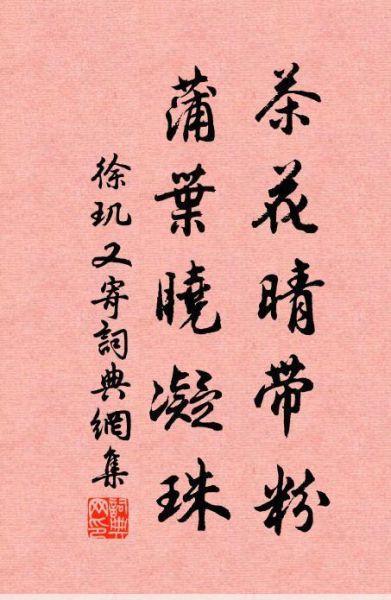 茶花晴带粉
蒲葉曉凝珠
徐玑又寄詞典網集
詞典網印